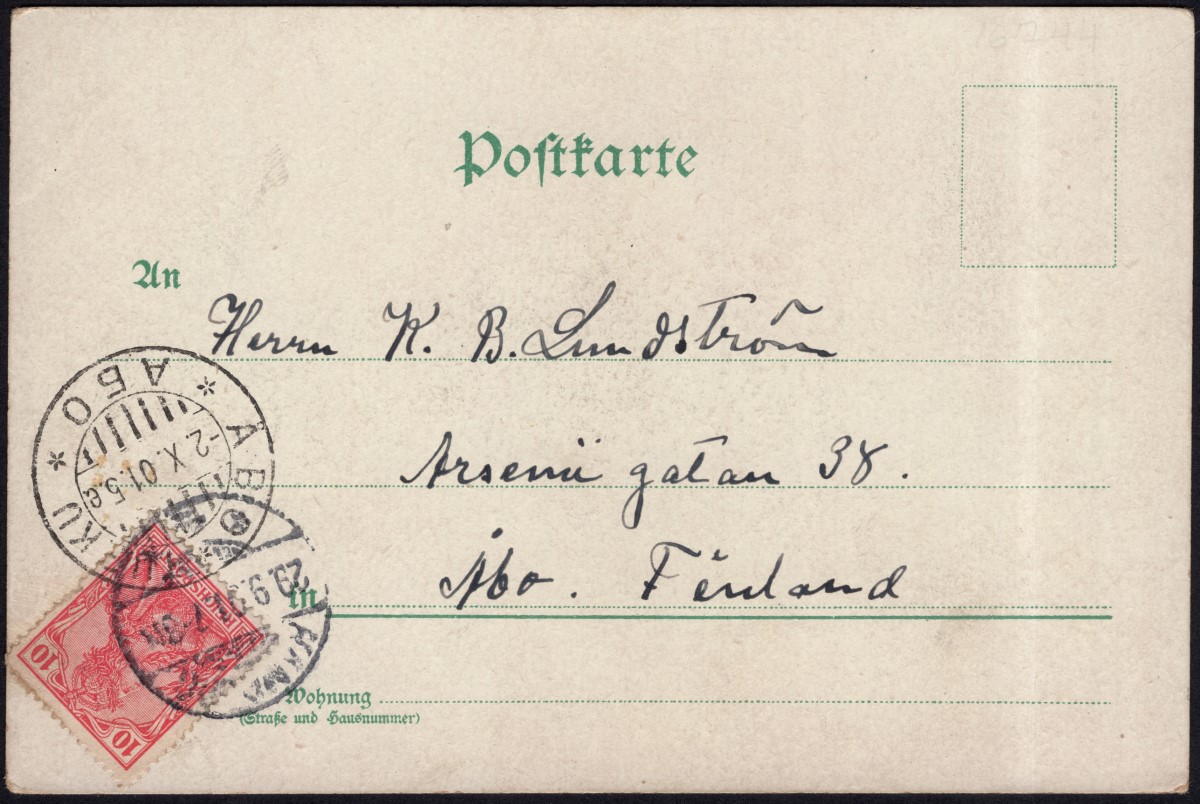 Postkarte
An
Herrn K. B. Lundström
Arsenii gatan 38.
Åbo. Finland
in
Wohnung
(Straße und Hausnummer)
АБО * ÅBO * TURKU
-2.X.01.5e
29 9
10
10